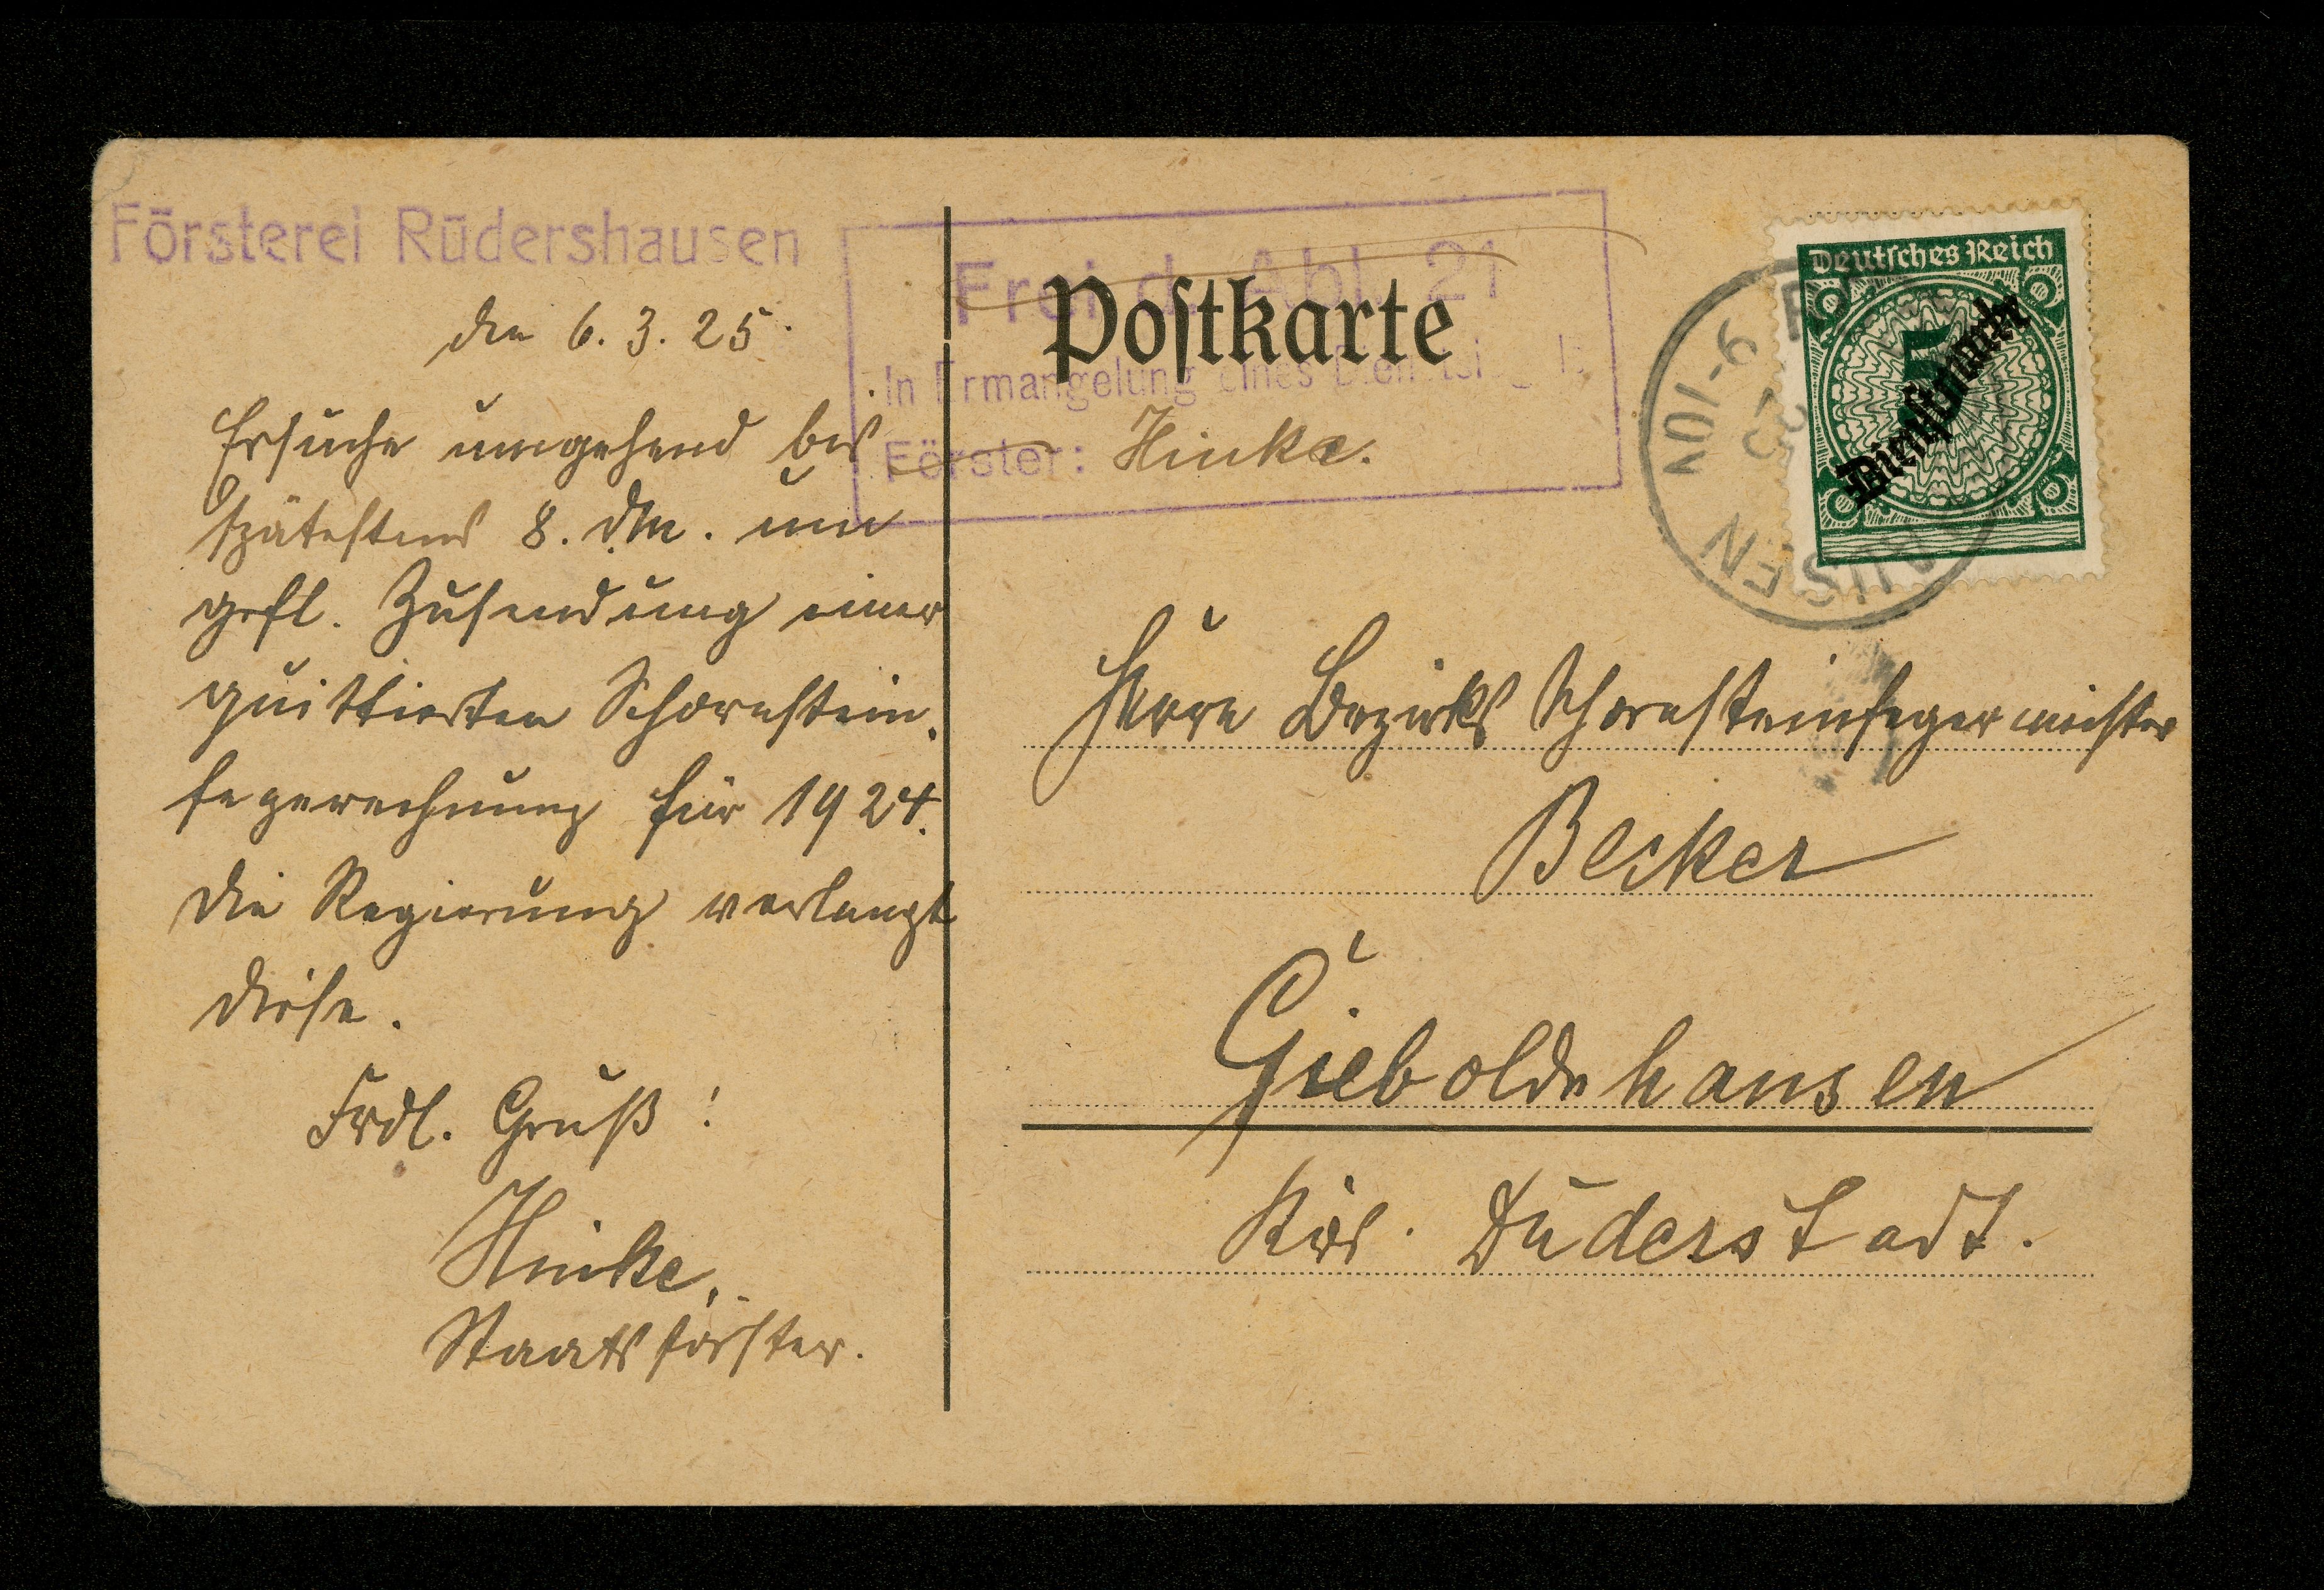 Försterei Rüdershausen
den 6. 3. 25.
Ersuche umgehend bis
spätestens 8. dM. um
gefl. Zusendung einer
quittierten Schornstein-
fegerrechnung für 1924.
Die Regierung verlangt
diese.
Frdl. Gruß!
Hinke,
Staatsförster.
Frei d. Abl. 21
Postkarte
In Ermangelung eines
Förster: Hinke.
Deutsches Reich
5
Dienstmarke
Herrn Bezirks Schornsteinfegermeister
Becker
Gieboldehausen
Krs. Duderstadt.